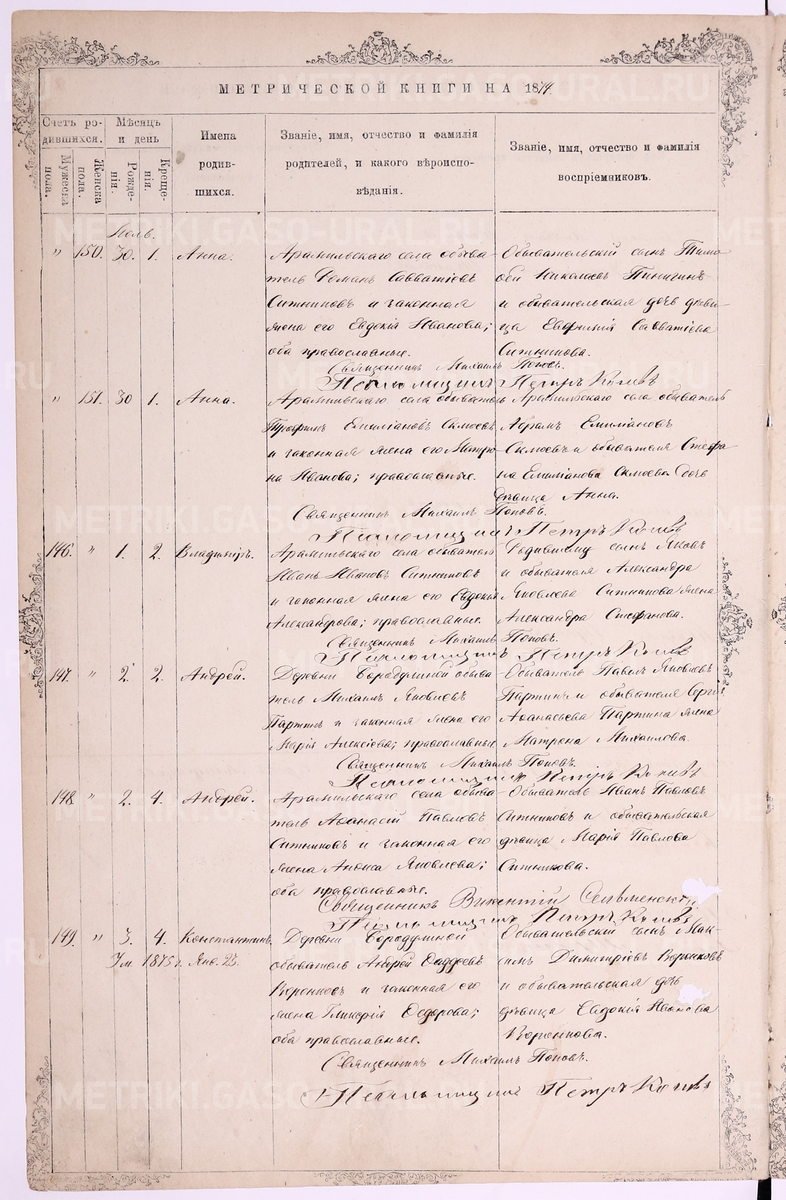 МЕТРИЧЕСКОЙ КНИГИ НА 1874.
Счетъ ро-
дившихся.
Мужеска
пола.
Женска
пола.
Мѣсяцъ
и день
Рожде-
нія.
Креще-
нія.
Имена
родив-
шихся.
Званіе, имя, отчество и фамилія
родителей, и какого вѣроиспо-
вѣданія.
Званіе, имя, отчество и фамилія
воспріемниковъ.
" 150. 30. 1. Анна.
Арамильскаго села обыва-
тель Романъ Савватіевъ
Ситниковъ и законная
жена его Евдокія Иванова;
оба православные.
Обывательскій сынъ Тимо-
фей Николаевъ
и обывательская дочь дѣви-
ца Евфимія Савватіева
Ситникова.
Священникъ Михаилъ Поповъ.
Псаломщикъ Петръ
" 151. 30 1. Анна.
Арамильскаго села обыватель
Трофимъ Емиліановъ
и законная жена его Матро-
на Иванова; православные.
Арамильскаго села обыватель
Абрамъ Емиліановъ
и обывателя Стефа-
на Емиліанова дочь
дѣвица Анна.
Священникъ Михаилъ Поповъ.
Псаломщикъ Петръ
146. " 1. 2. Владиміръ.
Арамильскаго села обыватель
Иванъ Ивановъ Ситниковъ
и законная жена его Евдокія
Александрова; православные.
Родившему сынъ Яковъ
и обывателя Александра
Яковлева Ситникова жена
Александра Стефанова.
Священникъ Михаилъ Поповъ.
Псаломщикъ Петръ
147. " 2. 2. Андрей.
Деревни Бородулиной обыва-
тель Михаилъ Яковлевъ
Партинъ и законная жена его
Марія Алексіева; православные
Обыватель Павелъ Яковлевъ
Партинъ и обывателя
Аѳанасьева Партина жена
Матрона Михаилова.
Священникъ Михаилъ Поповъ.
Псаломщикъ Петръ
148 " 2. 4. Андрей.
Арамильскаго села обыва-
тель Аѳанасій Павловъ
Ситниковъ и законная его
жена Анѳиса Яковлева;
оба православные.
Обыватель Иванъ Павловъ
Ситниковъ и обывательская
дѣвица Марія Павлова
Ситникова.
Священникъ Викентій
Псаломщикъ Петръ
149. " 3. 4. Константинъ.
Ум. 1875 г. Янв. 23.
Деревни Бородулиной
обыватель Андрей Фаддеевъ
Воронковъ и законная его
жена Гликерія Ѳедорова;
оба православные.
Обывательскій сынъ Мак-
симъ Димитріевъ Воронковъ
и обывательская дочь
дѣвица Евдокія Иванова
Священникъ Михаилъ Поповъ.
Псаломщикъ Петръ
METRIKI.GASO-URAL.RU